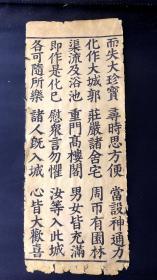 而失大珍寶　尋時思方便　當設神通力
化作大城郭　莊嚴諸舍宅　周帀有園林
渠流及浴池　重門高樓閣　男女皆充滿
即作是化已　慰衆言勿懼　汝等入此城
各可隨所樂　諸人既入城　心皆大歡喜